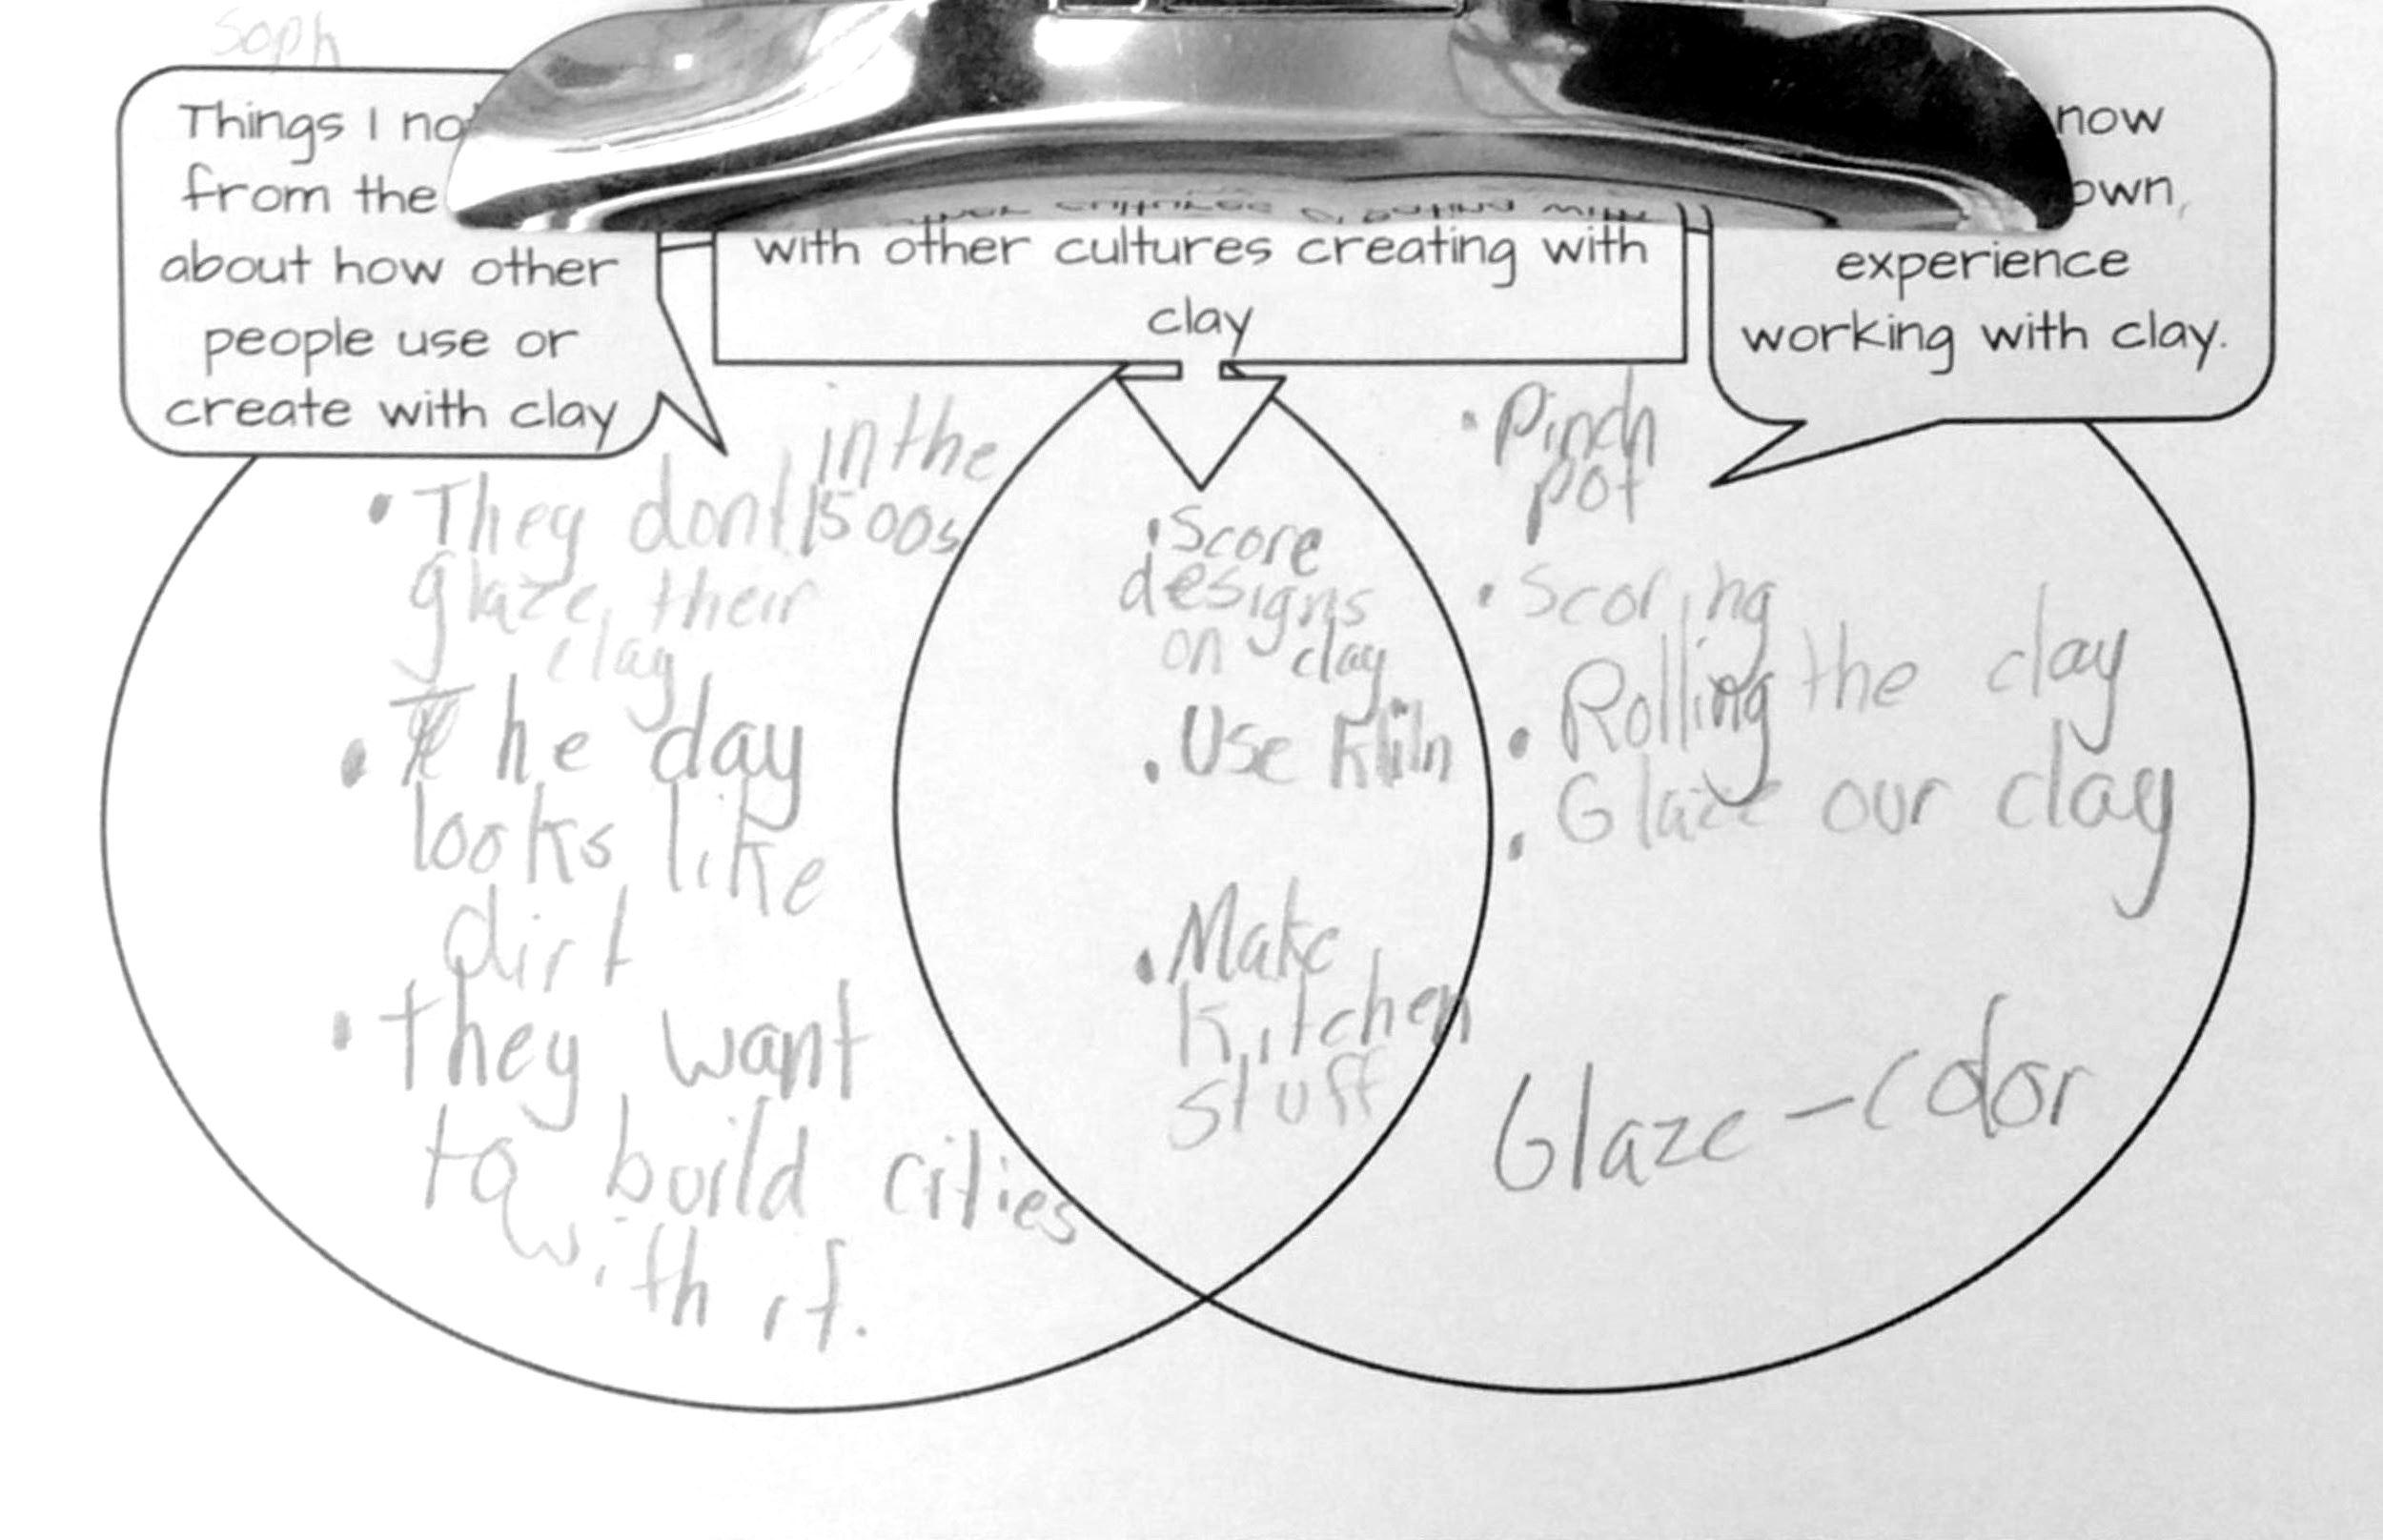 Soph
Things I no
from the
about how other
people use or
create with clay
with other cultures creating with
clay
now
own,
experience
working with clay.
in the
• They dont 1500s
glaze their
clay
• The day
looks like
dirt
• they want
to build cities
with it.
• Score
designs
on clay
• Use Kiln
• Make
Kitchen
stuff
• Pinch
pot
• Scoring
• Rolling the clay
• Glaze our clay
Glaze - color